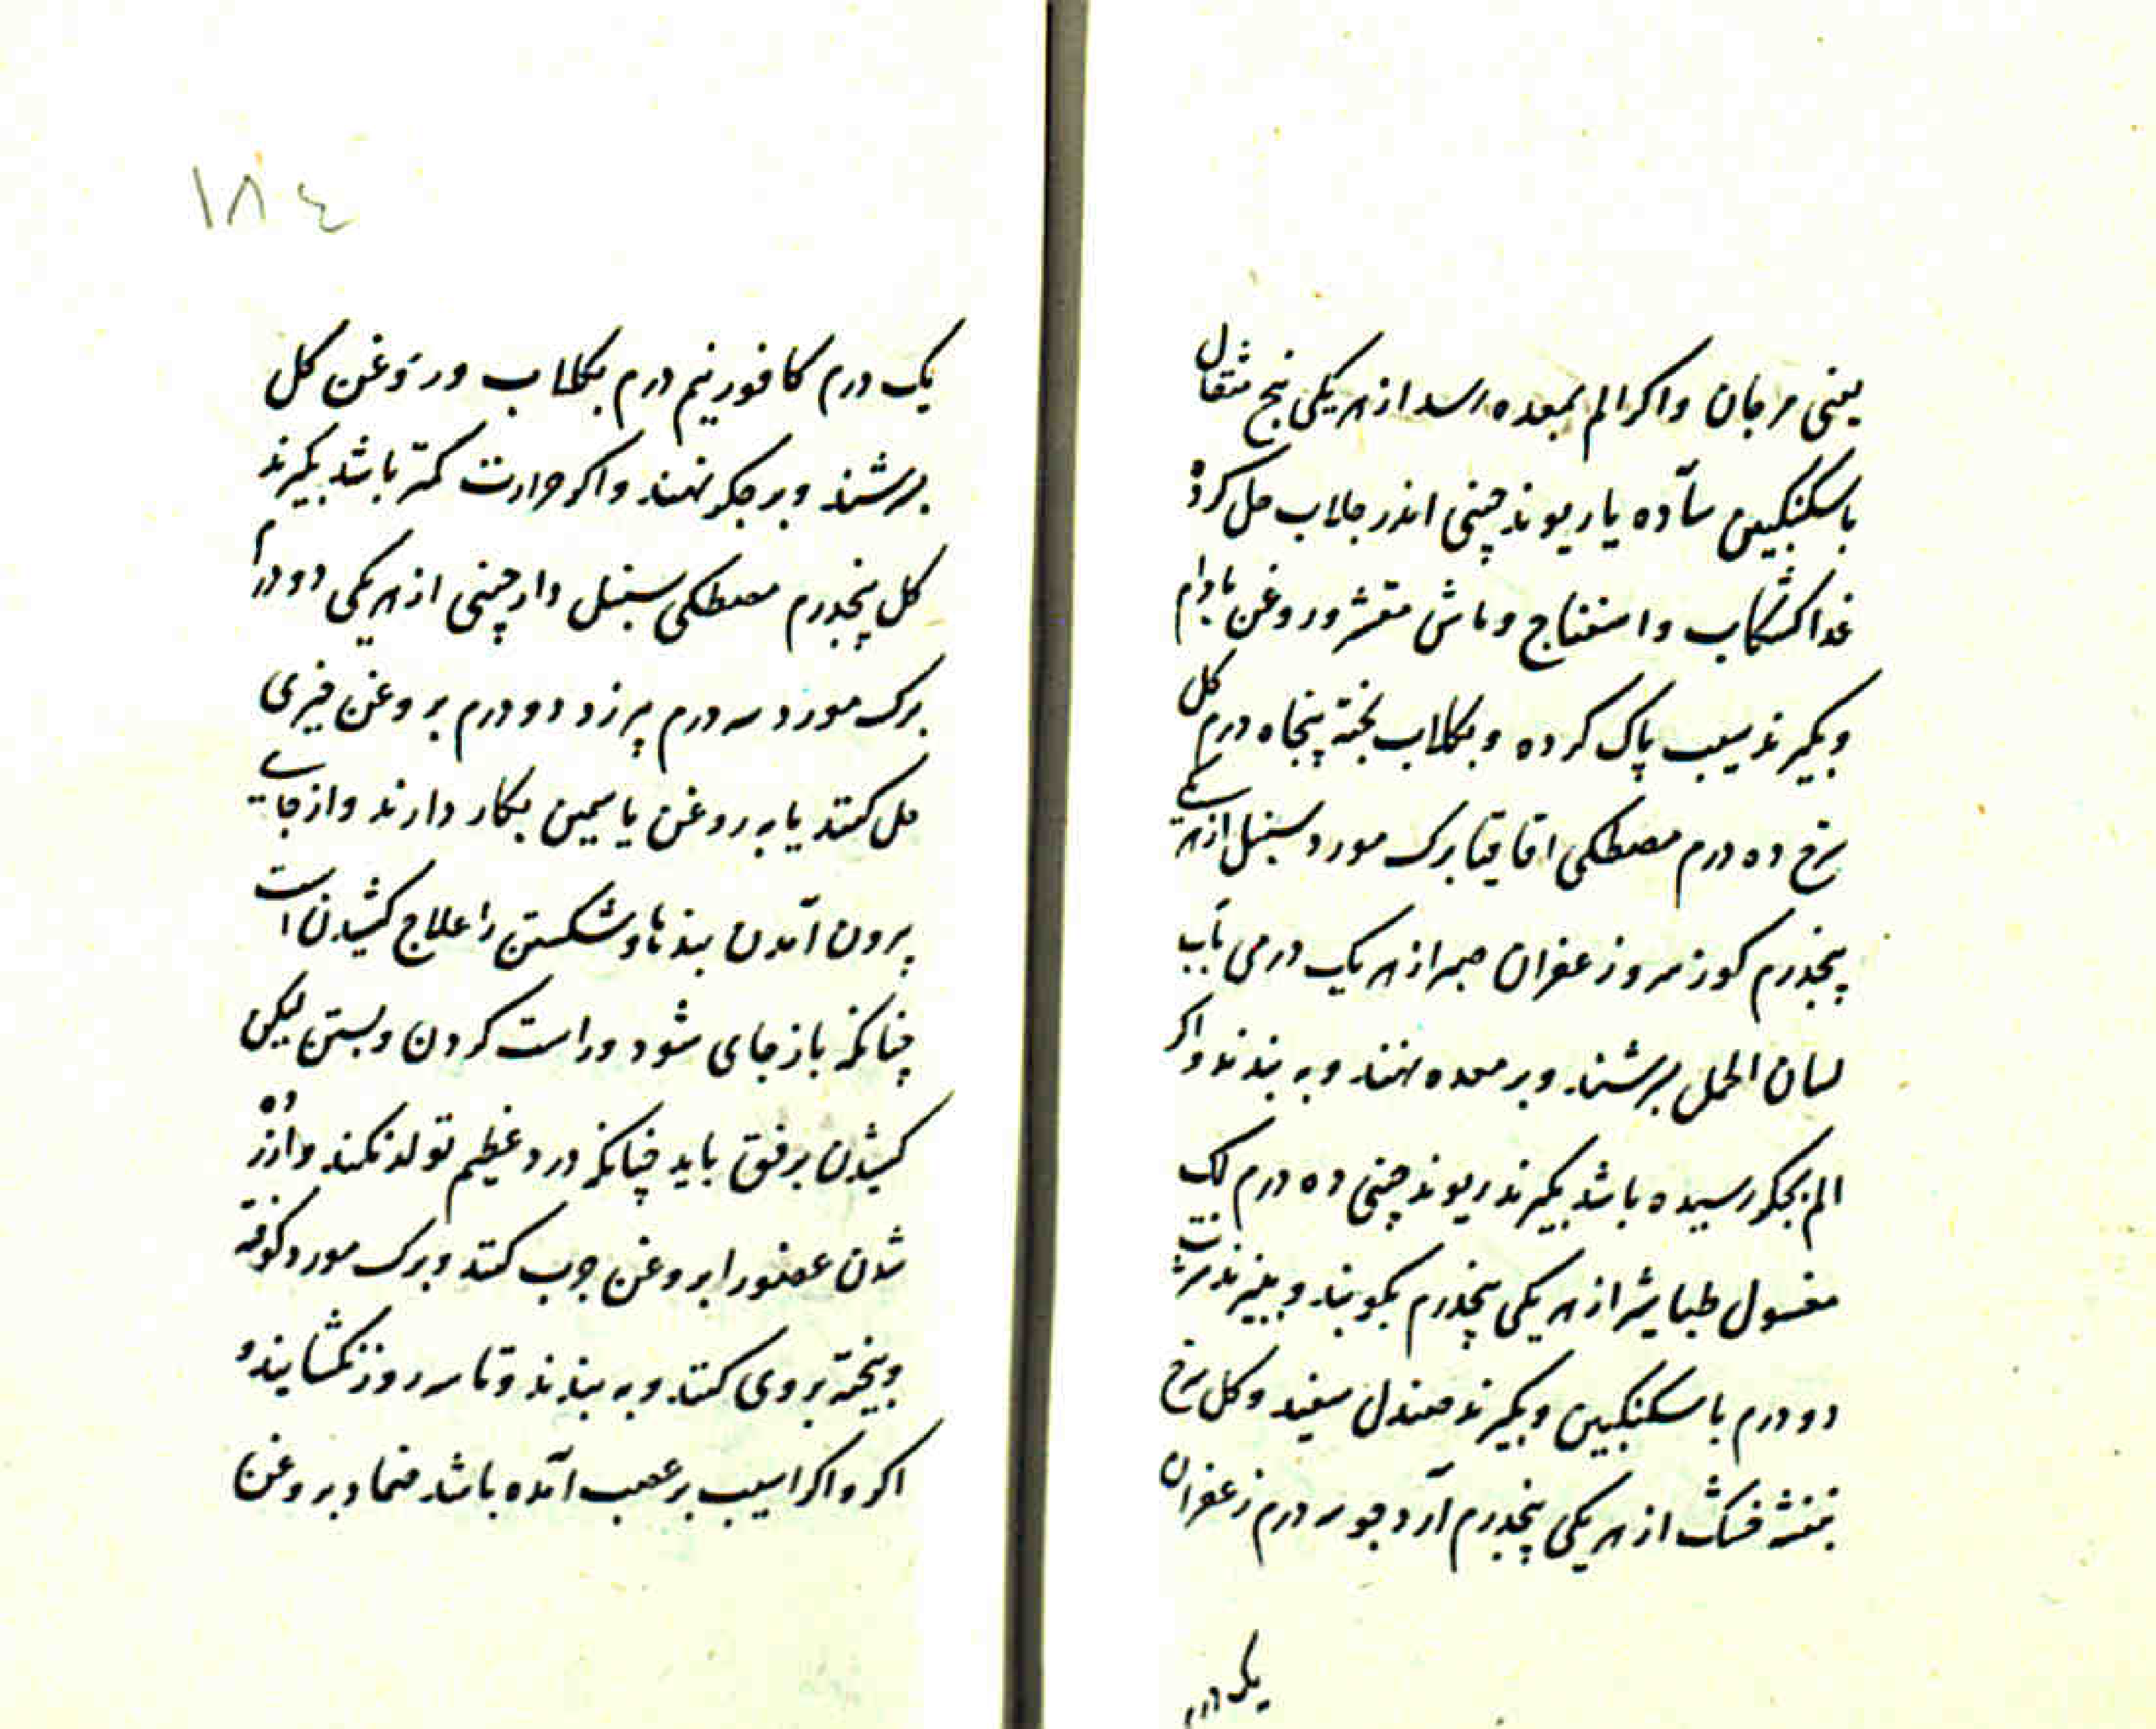 یعنی مرجان واکر الم بمعده رسد از هریکی پنج مثقال
باسکنکبین سآده یا ریوند چینی اندر جلاب حل کرده
غدا کشکاب واسفناج وماش مقشر وروغن بادام
وبکیرند سیب پاک کرده وبکلاب پخته پنجاه درم کل
سرخ ده درم مصطکی اقاقیا برک مورد سنبل از هریکی
پنجدرم کوز سرو زعفران صبر از هر یک درمی بآب
لسان الحمل بسرشند وبر معده نهند وبه بندند واکر
الم بجکر رسیده باشد بکیرند ریوند چینی ده درم لک
مغسول طباشیر از هریکی پنجدرم بکوبند وببیزند شربت
دو درم باسکنکبین وبکیرند صندل سفید وکل سرخ
بنفشه خشک از هریکی پنجدرم آرد جو سه درم زعفران
یک درم
١٨٤
یک درم کافور نیم درم بکلاب وروغن کل
بسرشند وبر جکر نهند واکر حرارت کمتر باشد بکیرند
کل پنجدرم مصطکی سنبل دارچینی از هریکی دو درم
برک مورد سه درم دو درم بروغن خیری
حل کنند یا به روغن یاسمین بکار دارند واز جای
بیرون آمدن بندها وشکستن را علاج کشیدن است
چنانکه باز جای شود وراست کردن وبستن لیکن
کشیدن برفق باید چنانکه درد عظیم تولد نکند وآزرده
شدن عضو را بروغن چرب کنند وبرک مورد کوفته
وبیخته بروی کنند وبه بندند وتا سه روز نکشایند و
اکر واکر اسیب بر عصب آمده باشد ضماد بروغن